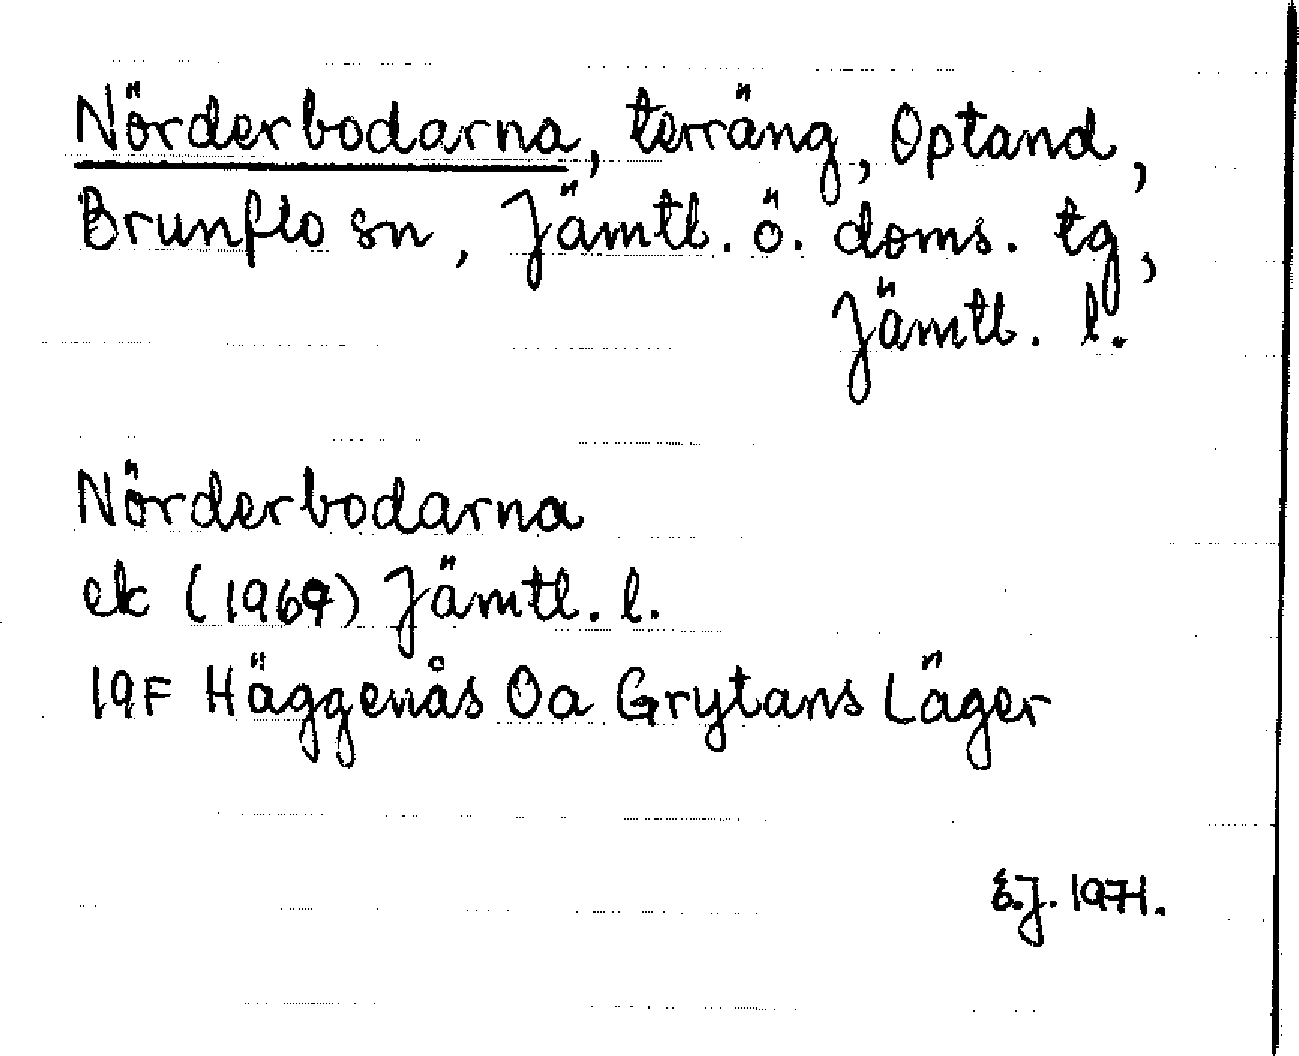 Nörderbodarna, terräng, Optand,
Brunflo sn, Jämtl. ö. doms. tg,
Jämtl. l.
Nörderbodarna
ek (1969) Jämtl. l.
19F Häggenås Oa Grytans Läger
E.J. 1971.